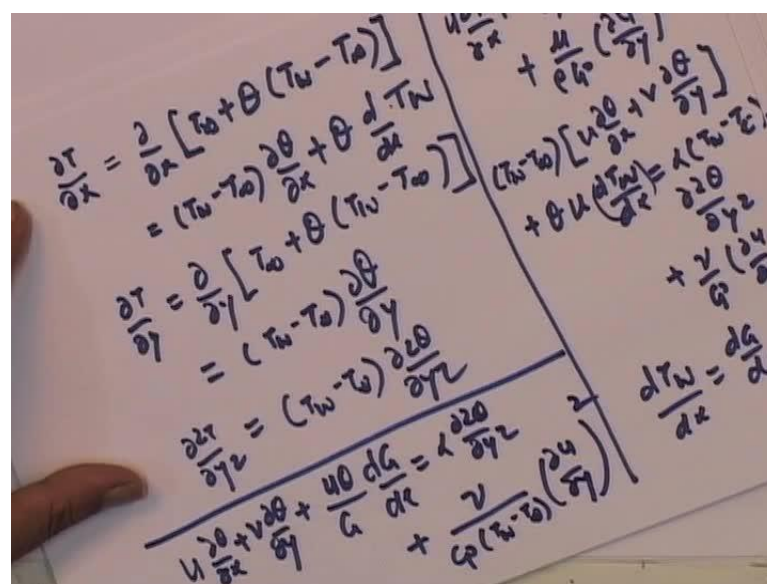 ∂T/∂x = ∂/∂x [T∞ + θ (Tw − T∞)]
= (Tw − T∞) ∂θ/∂x + θ d/dx Tw
∂T/∂y = ∂/∂y [T∞ + θ (Tw − T∞)]
= (Tw − T∞) ∂θ/∂y
∂2T/∂y2 = (Tw − T∞) ∂2θ/∂y2
u ∂θ/∂x + v ∂θ/∂y + uθ/G dG/dx = α ∂2θ/∂y2
+ ν/Cp(Tw − T∞) (∂u/∂y)2
+ μ/ρCp (∂u/∂y)
(Tw − T∞) [u ∂θ/∂x + v ∂θ/∂y]
+ θ u (dTw/dx) = α (Tw − T∞)
∂2θ/∂y2
+ ν/Cp (∂u/
dTw/dx = dG/d